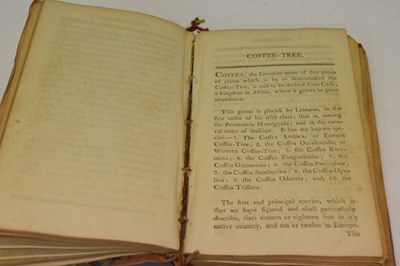 COFFEE-TREE.
COFFEA, the Linnæan name of this genus
of plants which is to be denominated the
Coffee-Tree, is said to be derived from Caffa,
a kingdom in Africa, where it grows in great
abundance.
This genus is placed, by Linnæus, in the
first order of his fifth class; that is, among
the Pentandria Monogynia: and in the natu-
ral order of Stellatæ. It has ten known spe-
cies—1. The Coffea Arabica, or Eastern
Coffee-Tree; 2. the Coffea Occidentalis, or
Western Coffee-Tree; 3. the Coffea
4. the Coffea 5. the
Coffea Guianensis; 6. the Coffea Paniculata;
7. the Coffea 8. the Coffea
9. the Coffea Odorata; and, 10. the
Coffea Triflora.
The first and principal species, which is
that we have figured and shall particularly
describe, rises sixteen or eighteen feet in it's
native country, and ten or twelve in Europe.
The